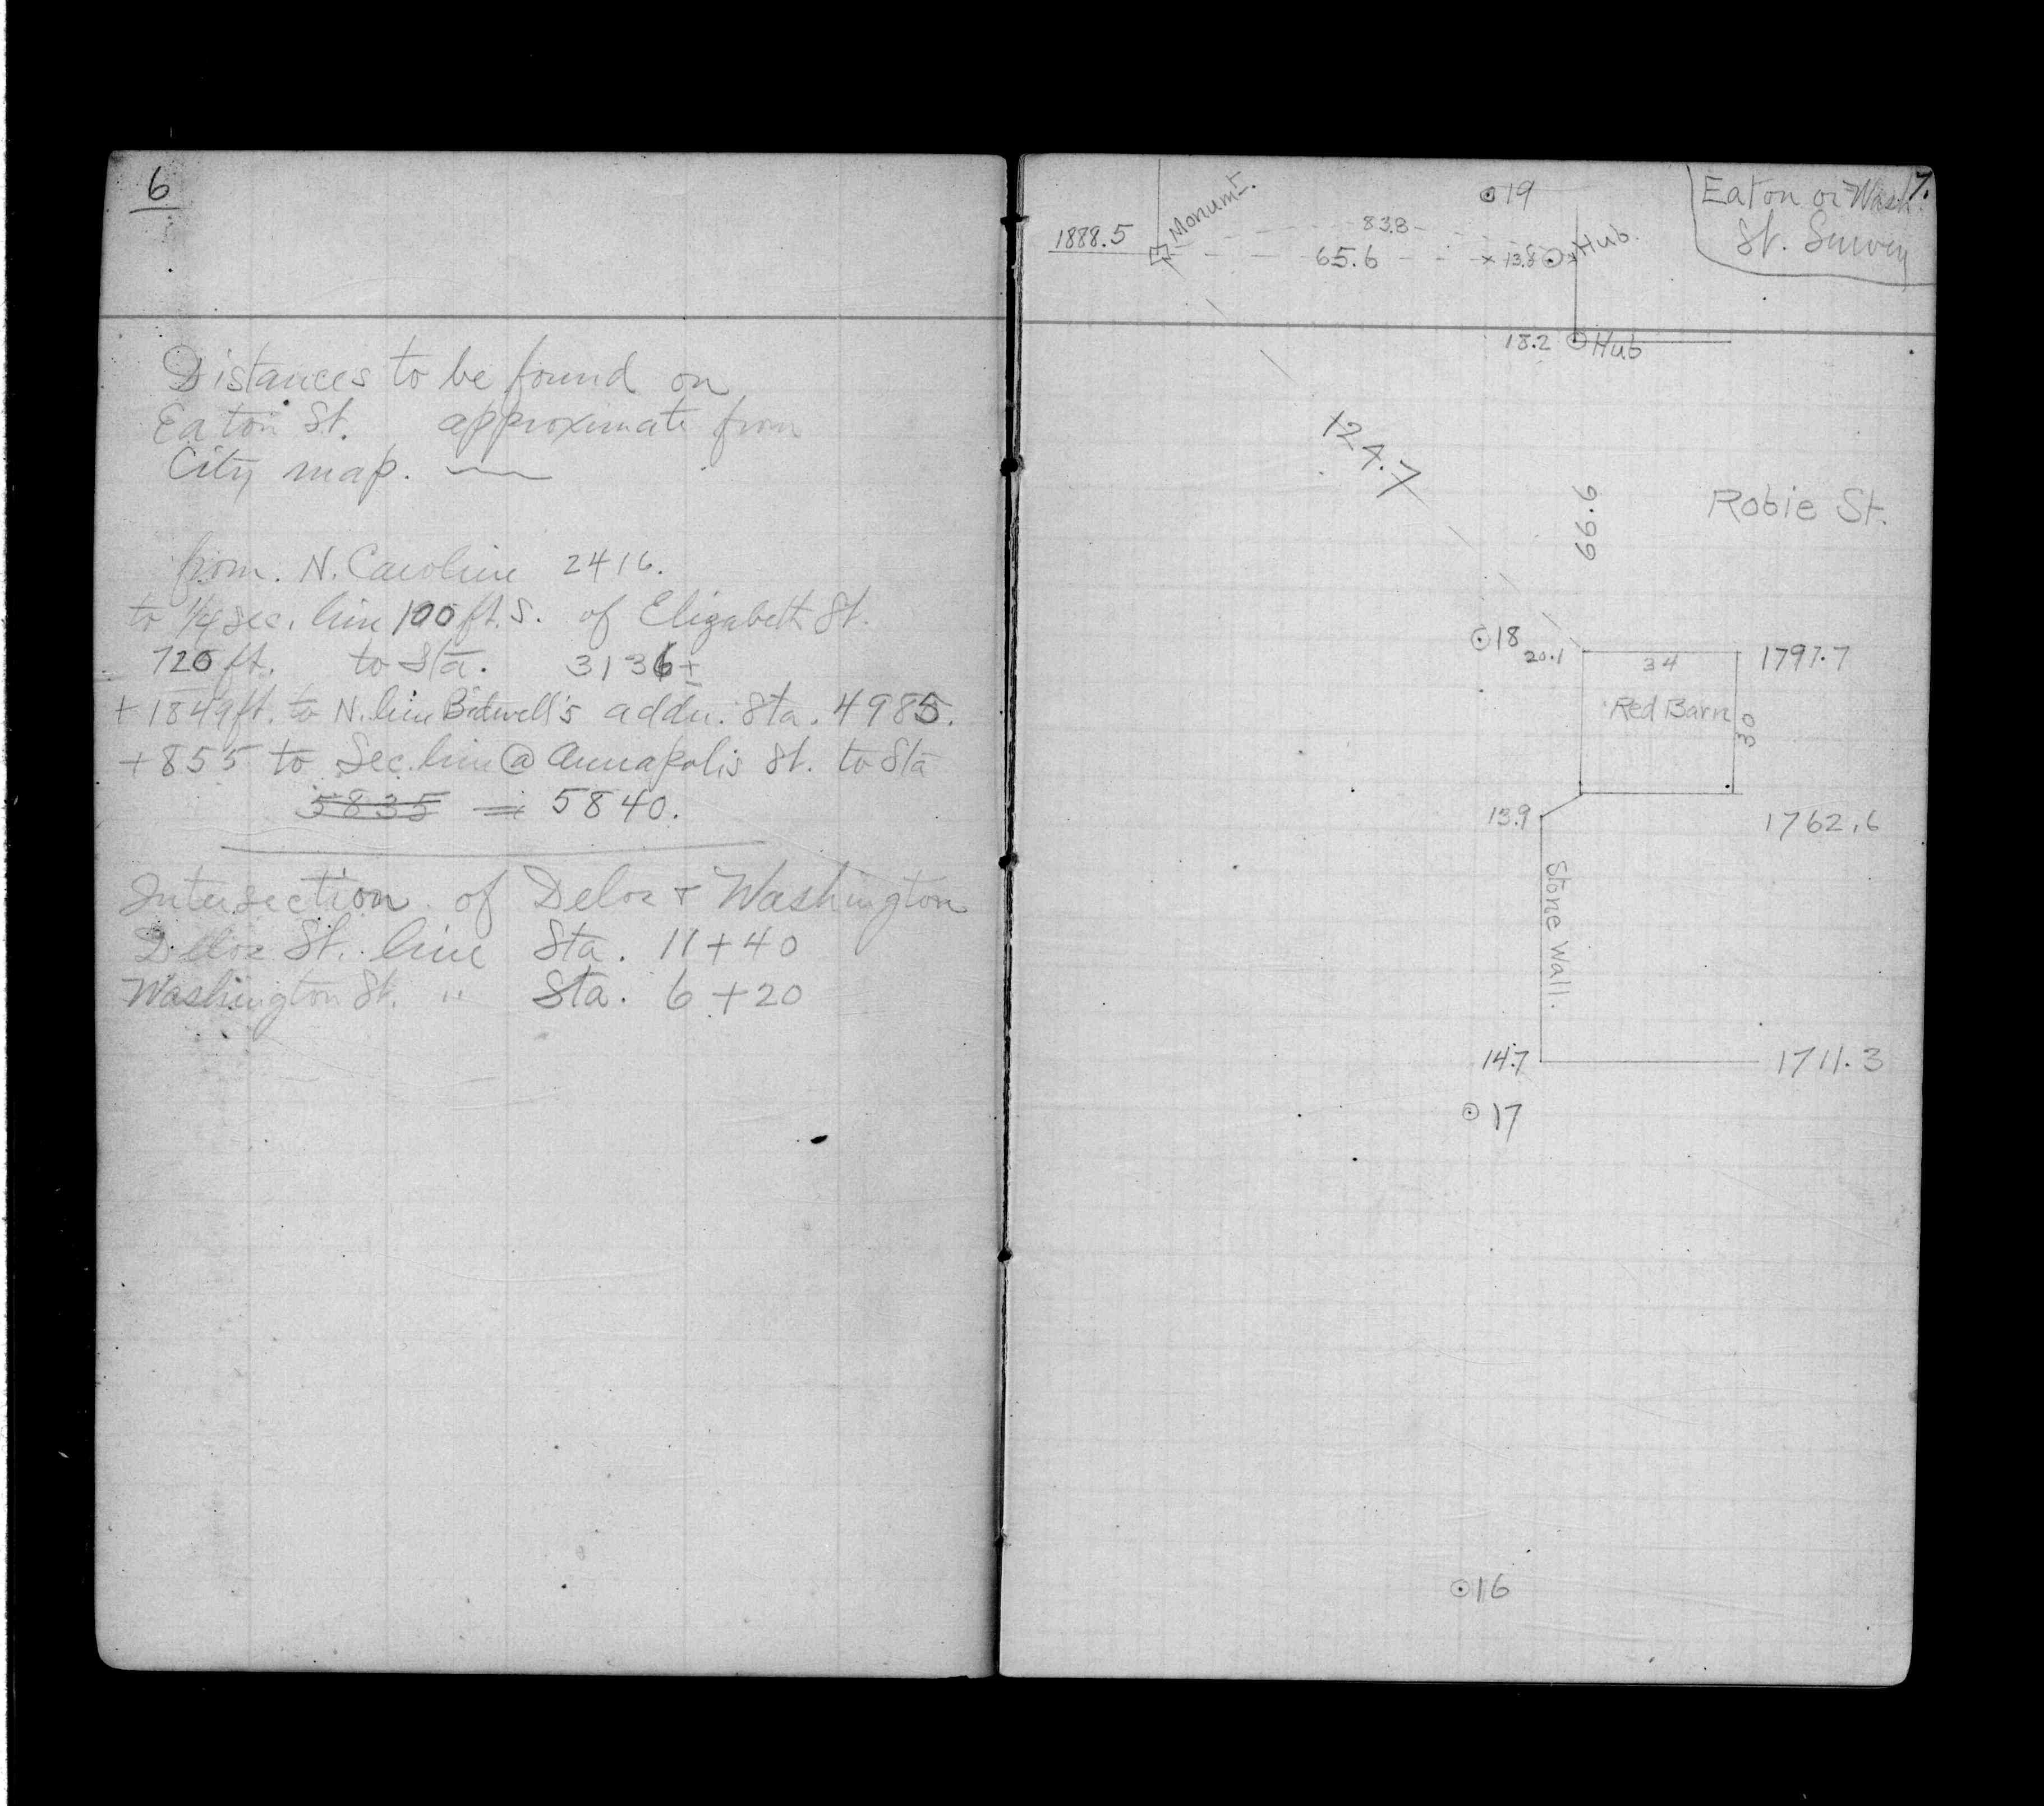 6
Distances to be found on
Eaton St. approximate from
City map.
from. N. Caroline 2416.
to 1/4 sec. line 100 ft. S. of Elizabeth St.
720 ft. to Sta. 3136±
+1849 ft. to N. line Bidwell's addn. Sta. 4985.
+855 to Sec. line @ Annapolis St. to Sta
5835 = 5840.
Intersection of Delos & Washington
Delos St. line Sta. 11+40
Washington St. " Sta. 6+20
7.
Eaton or Wash.
St. Survey
⊙19
Monumt.
1888.5
83.8
65.6
13.8
Hub.
18.2 ⊙ Hub
124.7
66.6
Robie St.
⊙18
20.1
34
1797.7
Red Barn
30
13.9
1762.6
Stone Wall.
14.7
1711.3
⊙17
⊙16